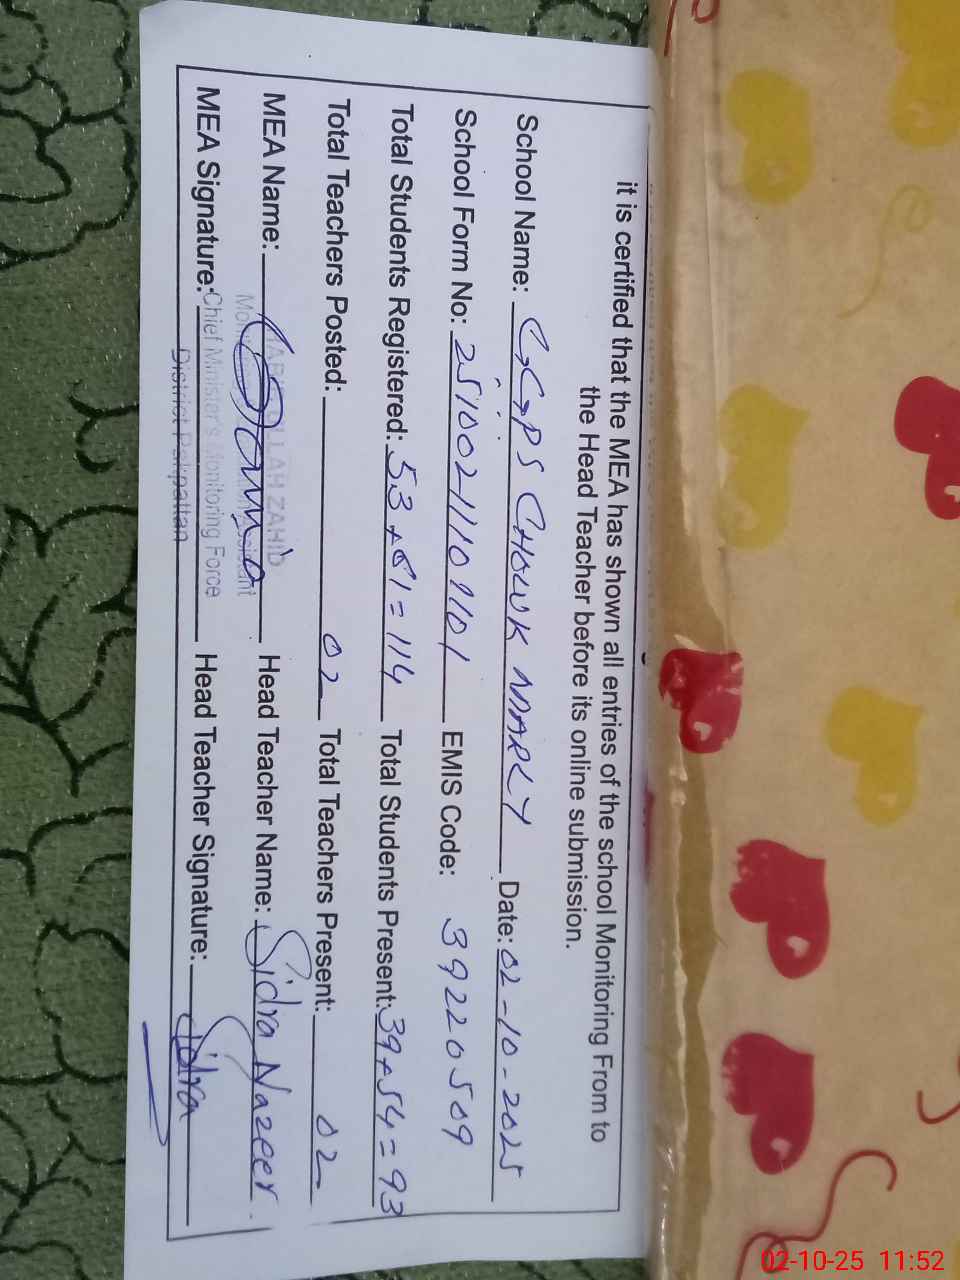 it is certified that the MEA has shown all entries of the school Monitoring From to
the Head Teacher before its online submission.
School Name: G.G.P.S CHOWK MARLY Date: 02-10-2025
School Form No: 251002111091101 EMIS Code: 39220509
Total Students Registered: 53+61=114 Total Students Present: 39+54=93
Total Teachers Posted: 02 Total Teachers Present: 02
MEA Name: Head Teacher Name: Sidra Nazeer
ULLAH ZAHID
Monitoring Assistant
MEA Signature: Head Teacher Signature: Sidra
Chief Minister's Monitoring Force
District Pakpattan
02-10-25 11:52